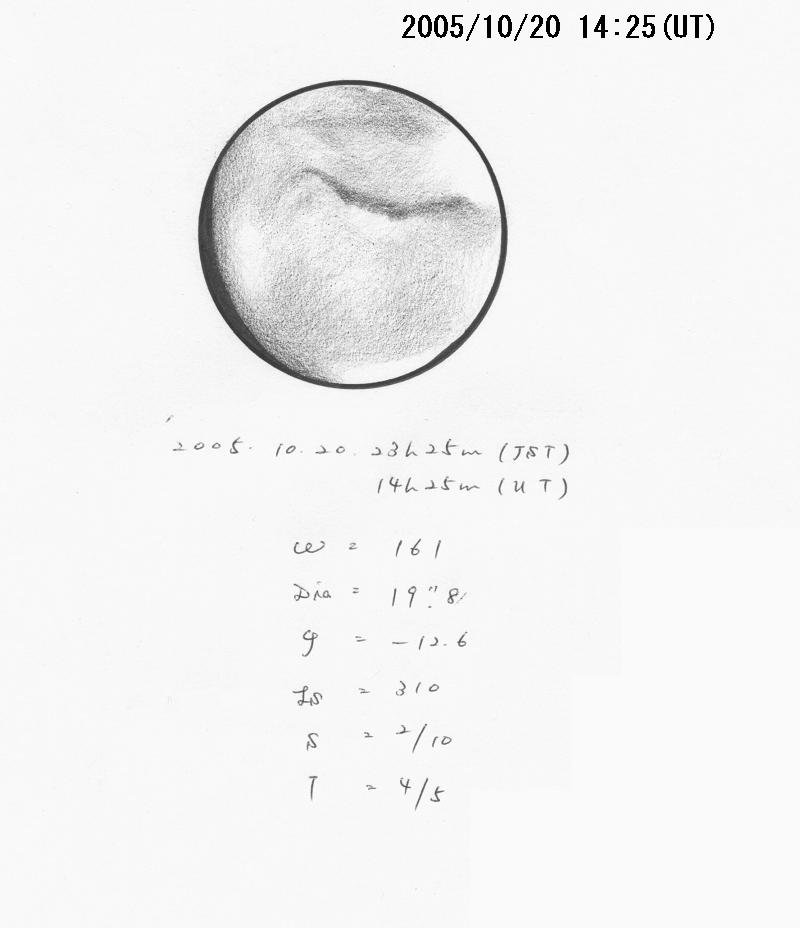 2005/10/20 14:25(UT)
2005. 10. 20. 23h25m (JST)
14h25m (UT)
ω = 161
Dia = 19".8
φ = -12.6
Ls = 310
S = 2/10
T = 4/5